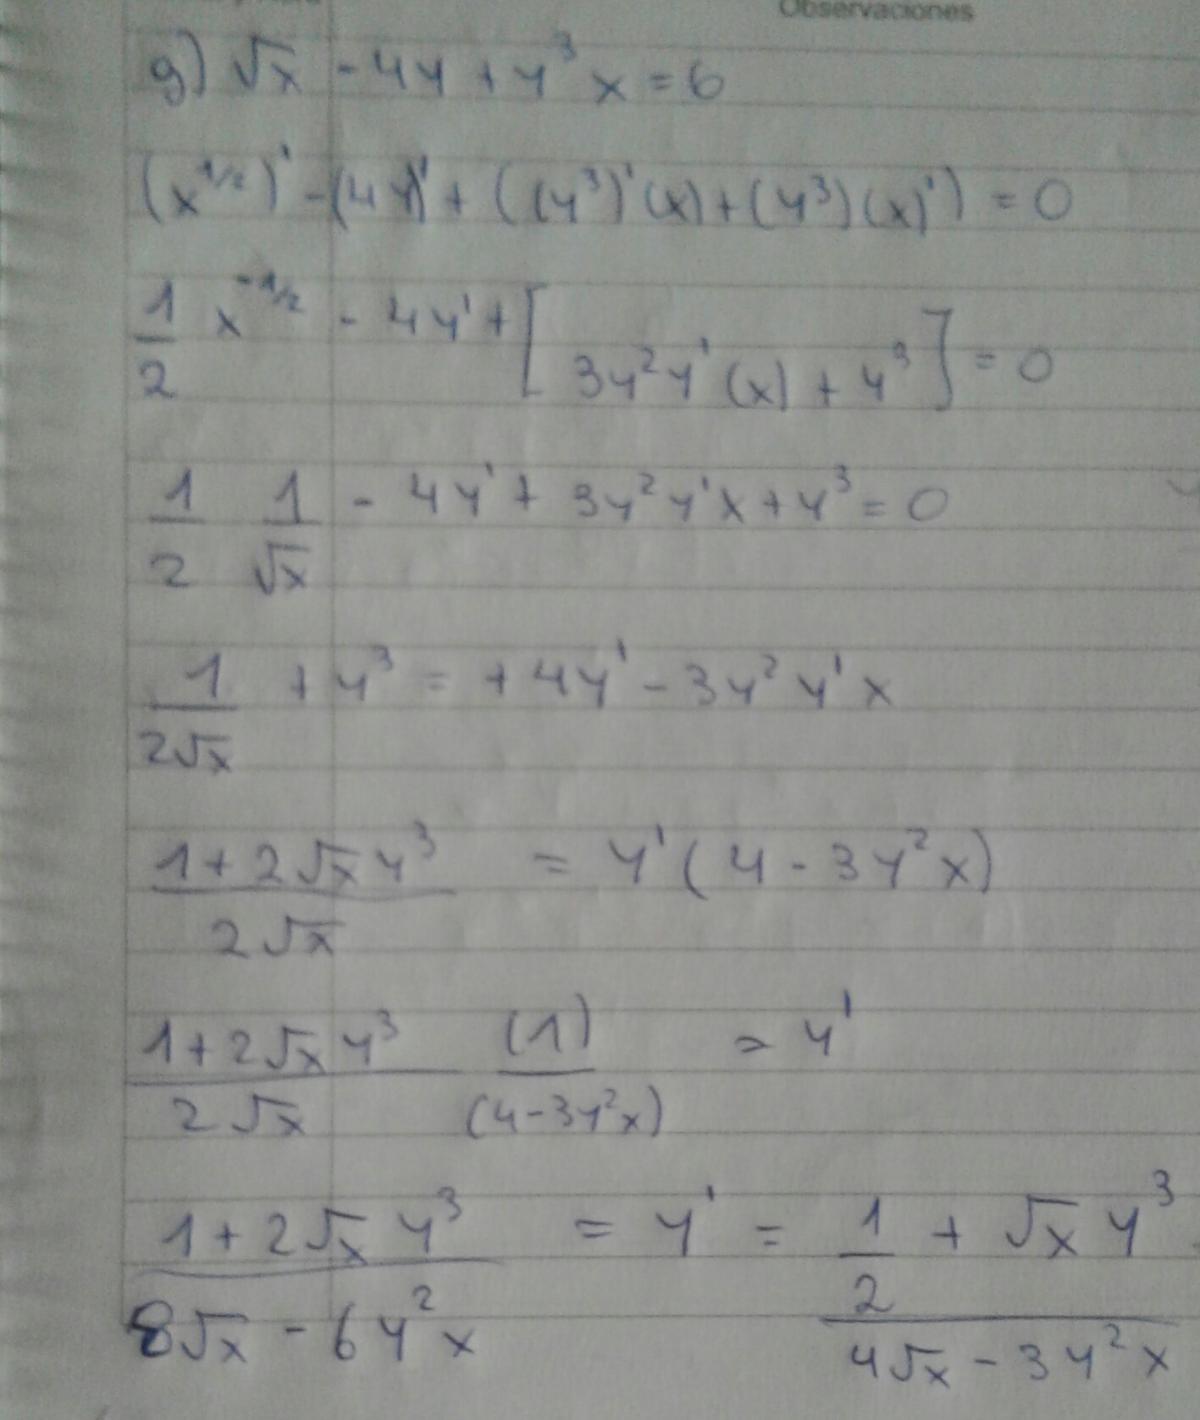 Observaciones
g) √x - 4y + y³x = 6
(x^{1/2})' - (4y)' + ((y³)'(x) + (y³)(x)') = 0
\frac{1}{2} x^{-1/2} - 4y' + [3y²y'(x) + y³] = 0
\frac{1}{2} \frac{1}{√x} - 4y' + 3y²y'x + y³ = 0
\frac{1}{2√x} + y³ = +4y' - 3y²y'x
\frac{1+2√x y³}{2√x} = y'(4 - 3y²x)
\frac{1+2√x y³}{2√x} \frac{(1)}{(4-3y²x)} = y'
\frac{1+2√x y³}{8√x - 6y²x} = y' = \frac{\frac{1}{2} + √x y³}{4√x - 3y²x}